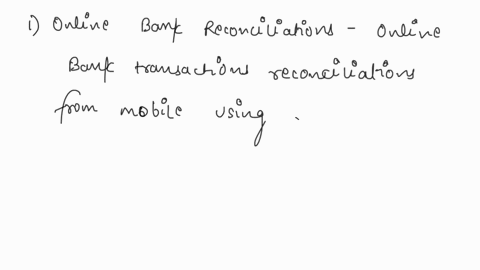 1) Online Bank Reconciliations - Online
Bank transactions reconciliations
from mobile using